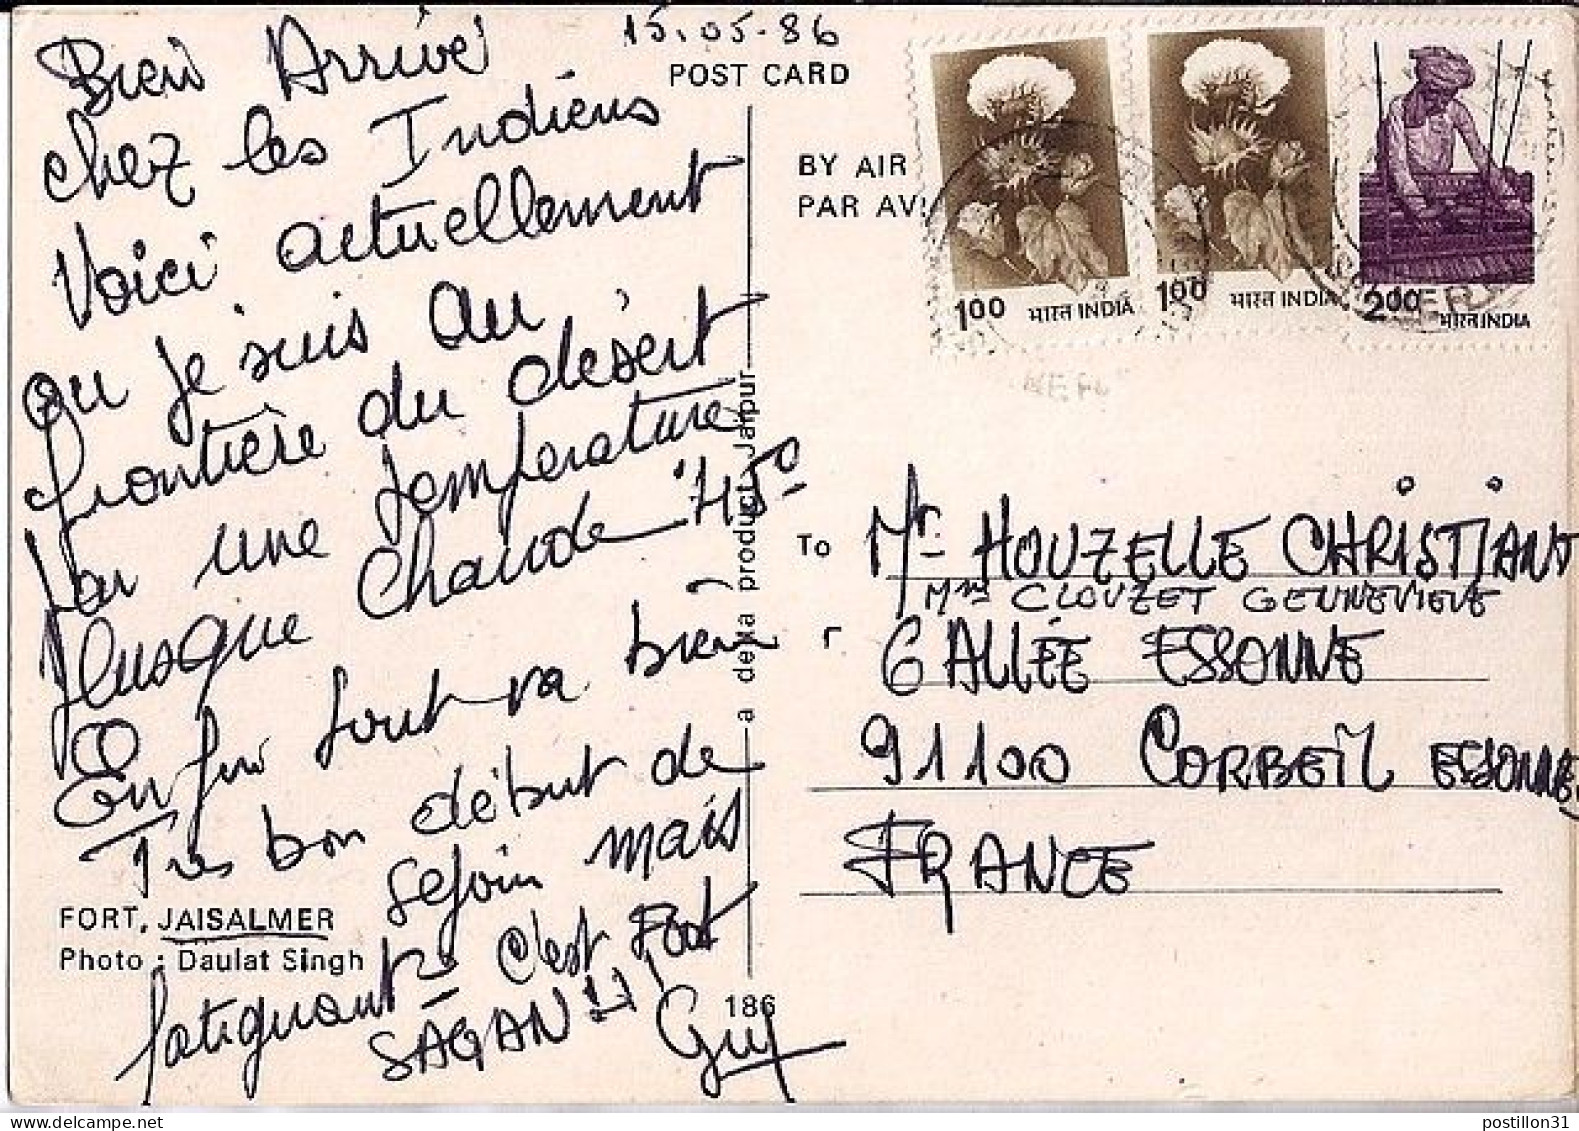 15.05.86
Bien Arrivé
chez les Indiens
Voici actuellement
ou je suis au
frontière du désert
par une température
plusque chaude 45°
Enfin tout va bien
Très bon début de
sejour mais
fatiguant c'est Foot
SAGAN
Guy
POST CARD
BY AIR
PAR AVI
100 भारत INDIA
100 भारत INDIA
200 भारत INDIA
To Mr HOUZELLE CHRISTIAN
Mme CLOUZET GENNEVIEVE
6 ALLÉE ESSONNE
91100 CORBEIL ESSONNES
FRANCE
FORT, JAISALMER
Photo : Daulat Singh
a dewa product Jaipur
186
postillon31